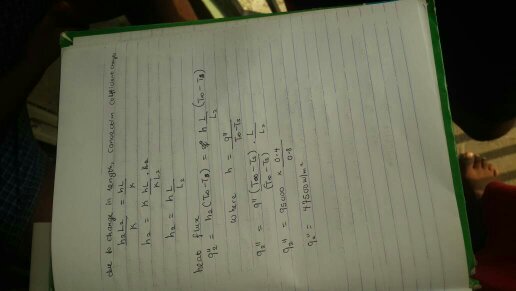 due to change in length, convection coefficient changes
h₂L₂/K = hL/K
h₂ = K hL/K . L₂
h₂ = h L/L₂
heat flux
q₂" = h₂(T∞-Ts) = h L/L₂ (T∞-Ts)
where h = q"/T∞-Ts
q₂" = q" (T∞-Ts)/(T∞-Ts) . L/L₂
q₂" = 95000 × 0.4/0.8
q₂" = 47500 W/m²